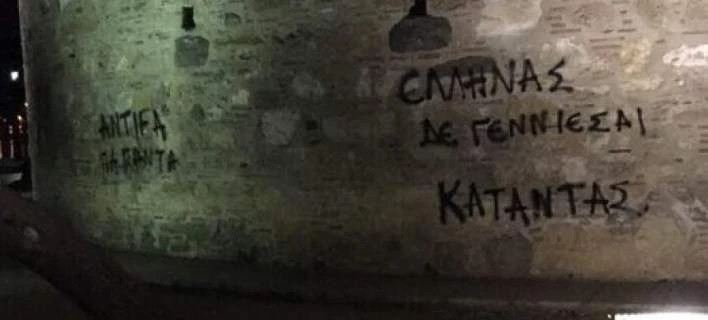 ANTIFA
ΓΙΑ ΠΑΝΤΑ
ΕΛΛΗΝΑΣ
ΔΕ ΓΕΝΝΙΕΣΑΙ
ΚΑΤΑΝΤΑΣ.